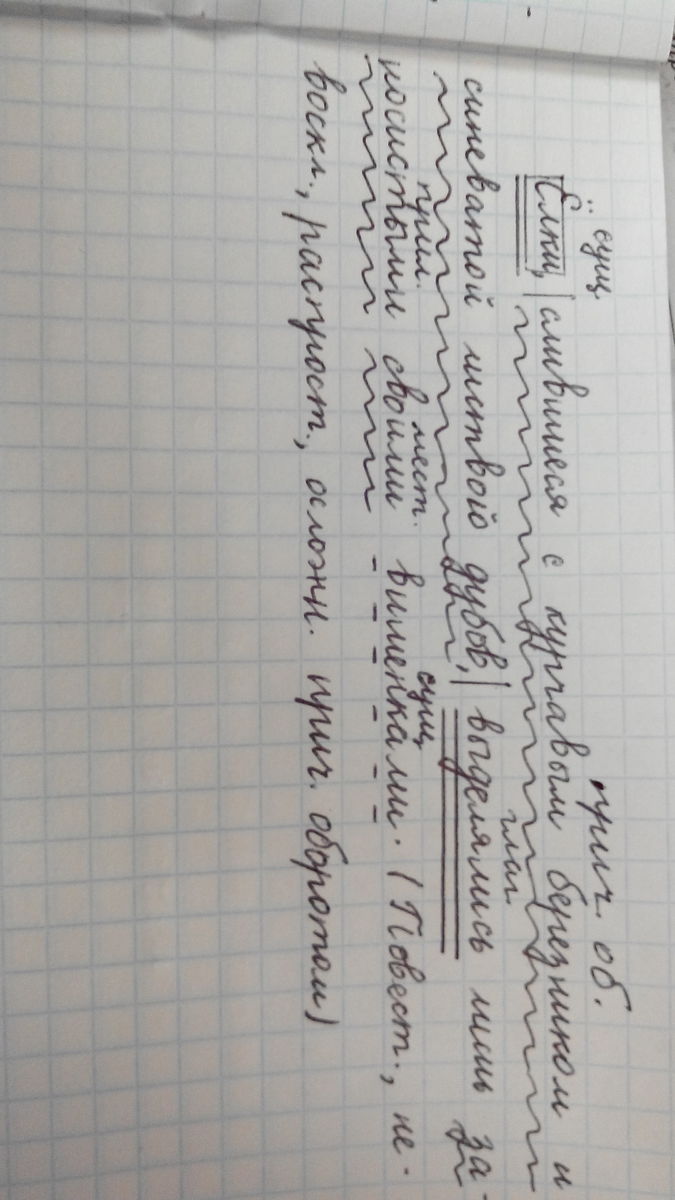 сущ прич. об.
Ёлки, слившиеся с кургавым березником и
глаг.
синеватой листвой дубов, выделялись лишь за-
прил. мест. сущ
носистыми своими вименками. (Повест., не-
воскл., распрост., осложн. прич. оборотом)